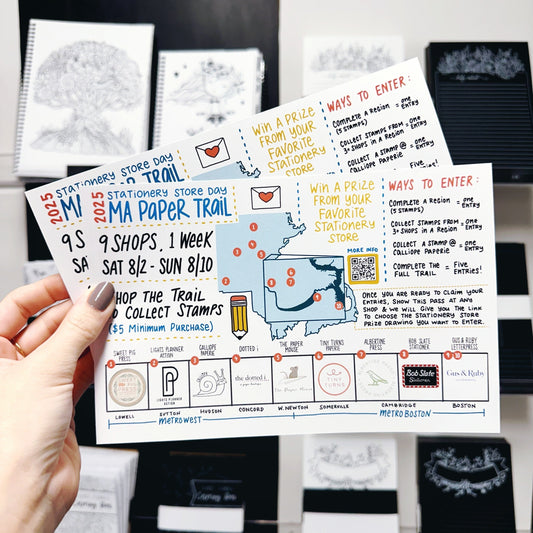 2025
STATIONERY STORE DAY
MA
9 S
SA
WIN A PRIZE
FROM YOUR
FAVORITE
STATIONERY
WAYS TO ENTER:
COMPLETE A REGION = ONE
(5 STAMPS) ENTRY
COLLECT STAMPS FROM = ONE
3+ SHOPS IN A REGION ENTRY
COLLECT A STAMP @ = ONE
CALLIOPE PAPERIE ENTRY
COMPLETE THE = FIVE
2025
STATIONERY STORE DAY
MA PAPER TRAIL
9 SHOPS, 1 WEEK
SAT 8/2 - SUN 8/10
SHOP THE TRAIL
TO COLLECT STAMPS
($5 MINIMUM PURCHASE)
WIN A PRIZE
FROM YOUR
FAVORITE
STATIONERY
STORE
MORE INFO
WAYS TO ENTER:
COMPLETE A REGION = ONE
(5 STAMPS) ENTRY
COLLECT STAMPS FROM = ONE
3+ SHOPS IN A REGION ENTRY
COLLECT A STAMP @ = ONE
CALLIOPE PAPERIE ENTRY
COMPLETE THE = FIVE
FULL TRAIL ENTRIES!
ONCE YOU ARE READY TO CLAIM YOUR
ENTRIES, SHOW THIS PASS AT ANY
SHOP & WE WILL GIVE YOU THE LINK
TO CHOOSE THE STATIONERY STORE
PRIZE DRAWING YOU WANT TO ENTER.
SWEET PIG PRESS
LIGHTS PLANNER ACTION
CALLIOPE PAPERIE
DOTTED i
THE PAPER MOUSE
TINY TURNS PAPERIE
ALBERTINE PRESS
BOB SLATE STATIONER
GUS & RUBY LETTERPRESS
LIGHTS PLANNER ACTION
the dotted i
The Paper Mouse
TINY TURNS
Bob Slate
Stationer
GUS & RUBY
LOWELL
SUTTON
HUDSON
CONCORD
W. NEWTON
SOMERVILLE
CAMBRIDGE
BOSTON
METROWEST
METRO BOSTON